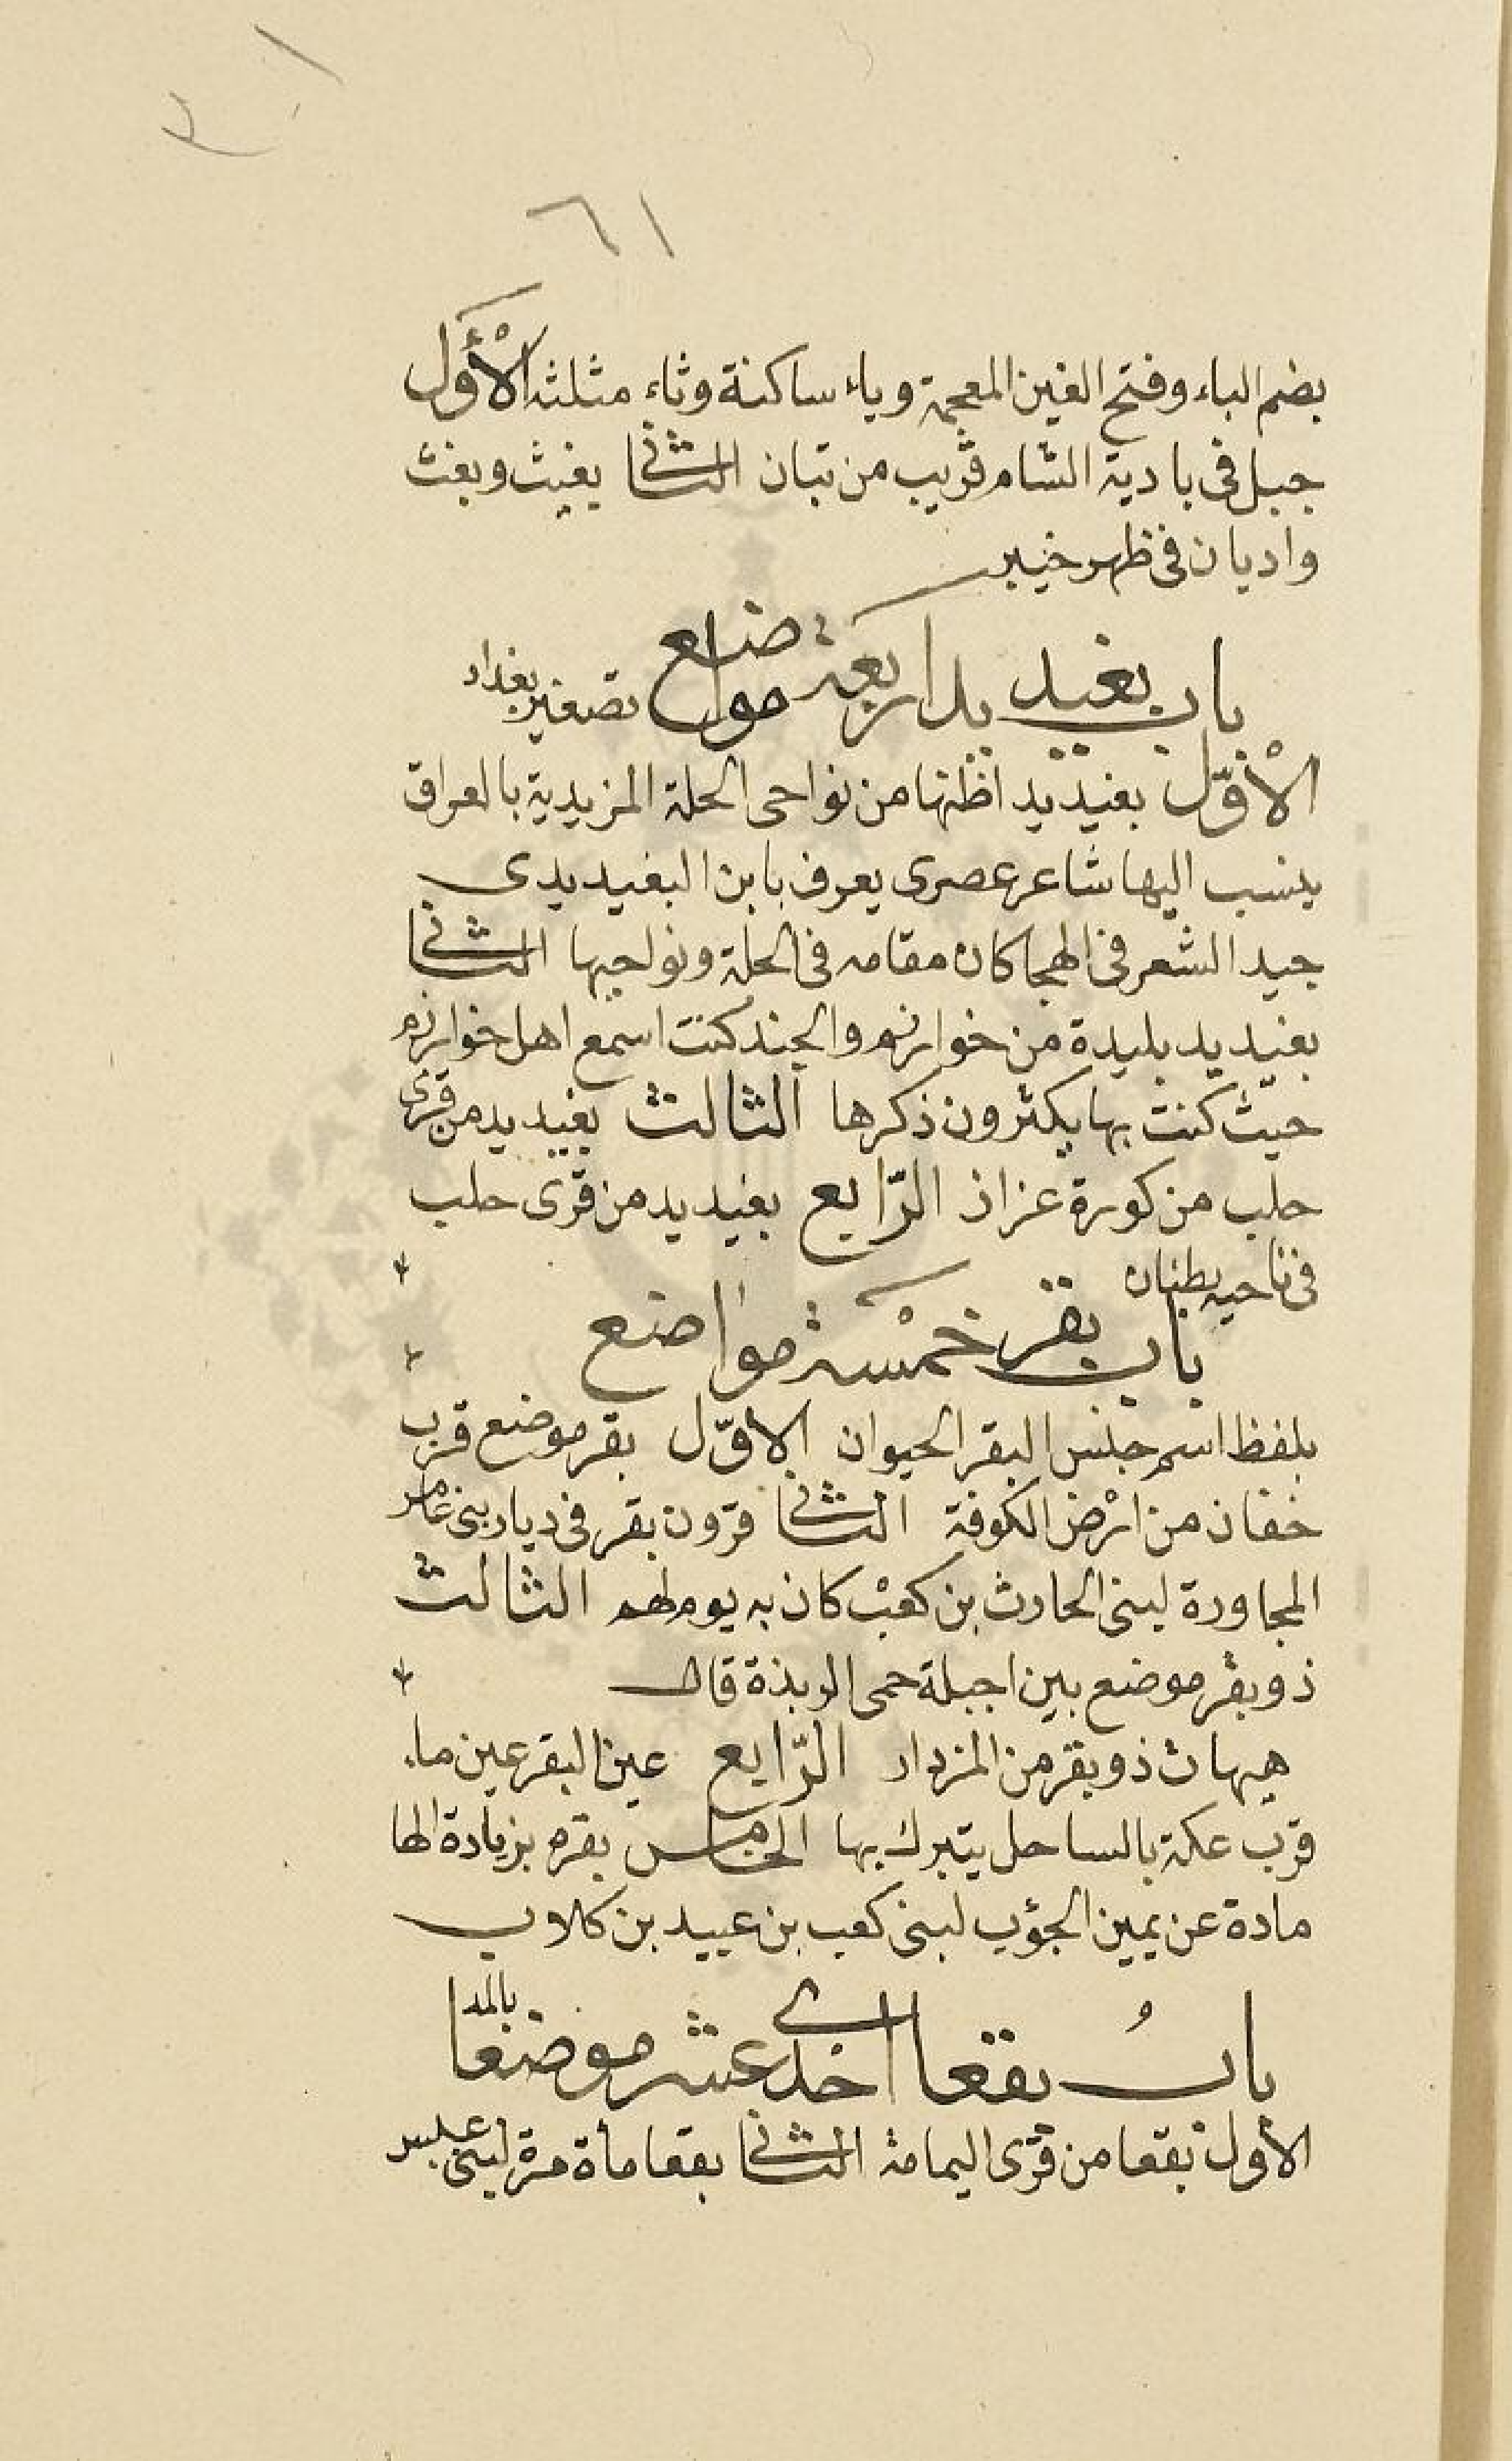 ٦١
بضم الباء وفتح الغين المعجمة وياء ساكنة وثاء مثلثه الأْوّل
جبل فى بادية الشام قريب من تبان الثانى بغيث وبغث
واديان فى ظهر خيبر
باب بغيديد اربعة مواضع تصغير بغداد
الاْوّل بغيديد اظنها من نواحى الحلة المزيدية بالعراق
ينسب اليها شاعر عصرى يعرف بابن البغيديدى
جيد الشعر فى الهجا كان مقامه فى الحلة ونواحيها الثانى
بغيديد بليدة من خوارزم والجند كنت اسمع اهل خوارزم
حيث كنت بها يكثرون ذكرها الثالث بغيديد من قرى
حلب من كورة عزاز الرّابع بغيديد من قرى حلب
فى ناحيه بطنان
باب بقر خمْسة مواضع
بلفظ اسم جنس البقر الحيوان الاوّل بقر موضع قرب
خفان من ارْض الكوفة الثانى قرون بقر فى ديار بنى عامر
المجاورة لبنى الحارث بن كعبْ كان به يوم لهم الثالث
ذو بقر موضع بين اجبلة حمى الربذة قال
هيهات ذو بقر من المزدار الرّابع عين البقر عين ماء
قرب عكة بالساحل يتبرك بها الخامس بقره بزيادة الها
مادة عن يمين الجؤب لبنى كعب بن عبيد بن كلاب
بابُ بقعا احْدى عشر موضعا بالمد
الأول بقعا من قرى اليمامة الثانى بقعا مأة مرة لبنى عبيد